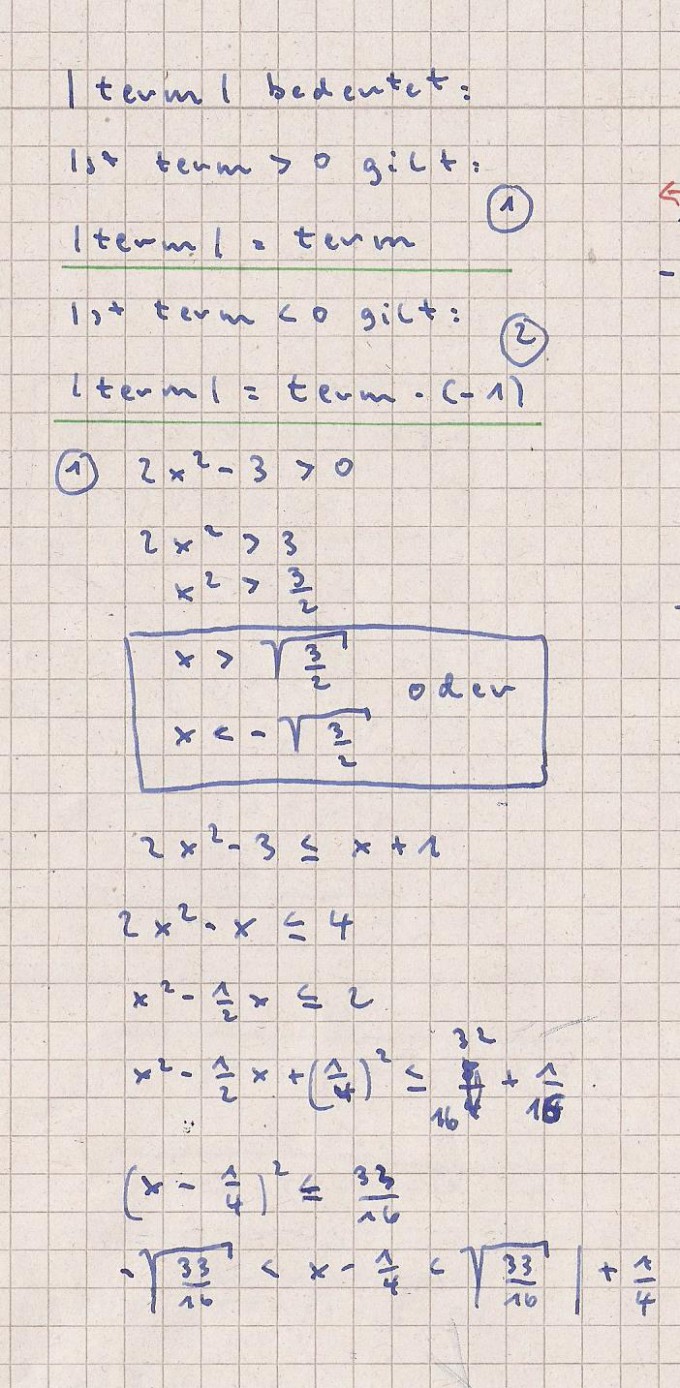 |term| bedeutet:
Ist term > 0 gilt:
①
|term| = term
Ist term < 0 gilt:
②
|term| = term · (-1)
① 2x² - 3 > 0
2x² > 3
x² > 3/2
x > √(3/2)
oder
x < -√(3/2)
2x² - 3 ≤ x + 1
2x² - x ≤ 4
x² - 1/2 x ≤ 2
x² - 1/2 x + (1/4)² ≤ 32/16 + 1/16
(x - 1/4)² ≤ 33/16
-√(33/16) < x - 1/4 < √(33/16) | + 1/4